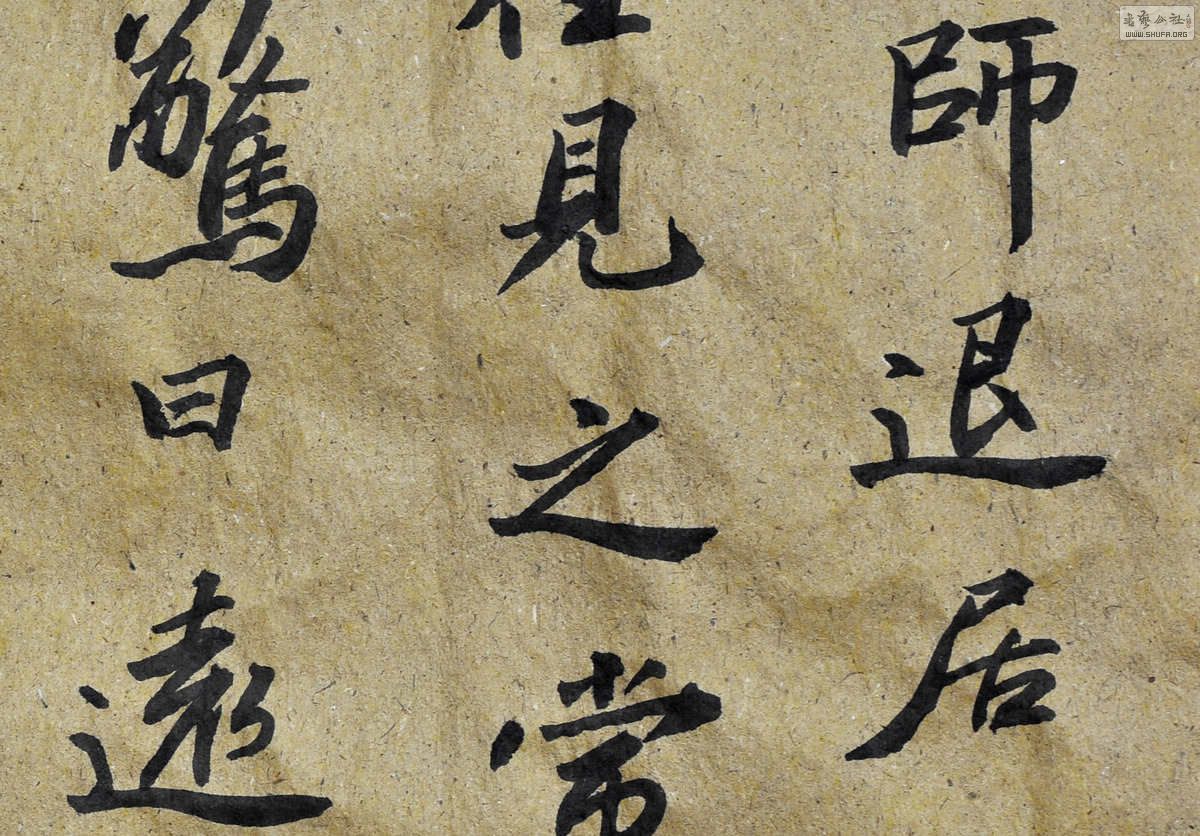 師退居
往見之常
驚曰遠
書藝公社
WWW.SHUFA.ORG